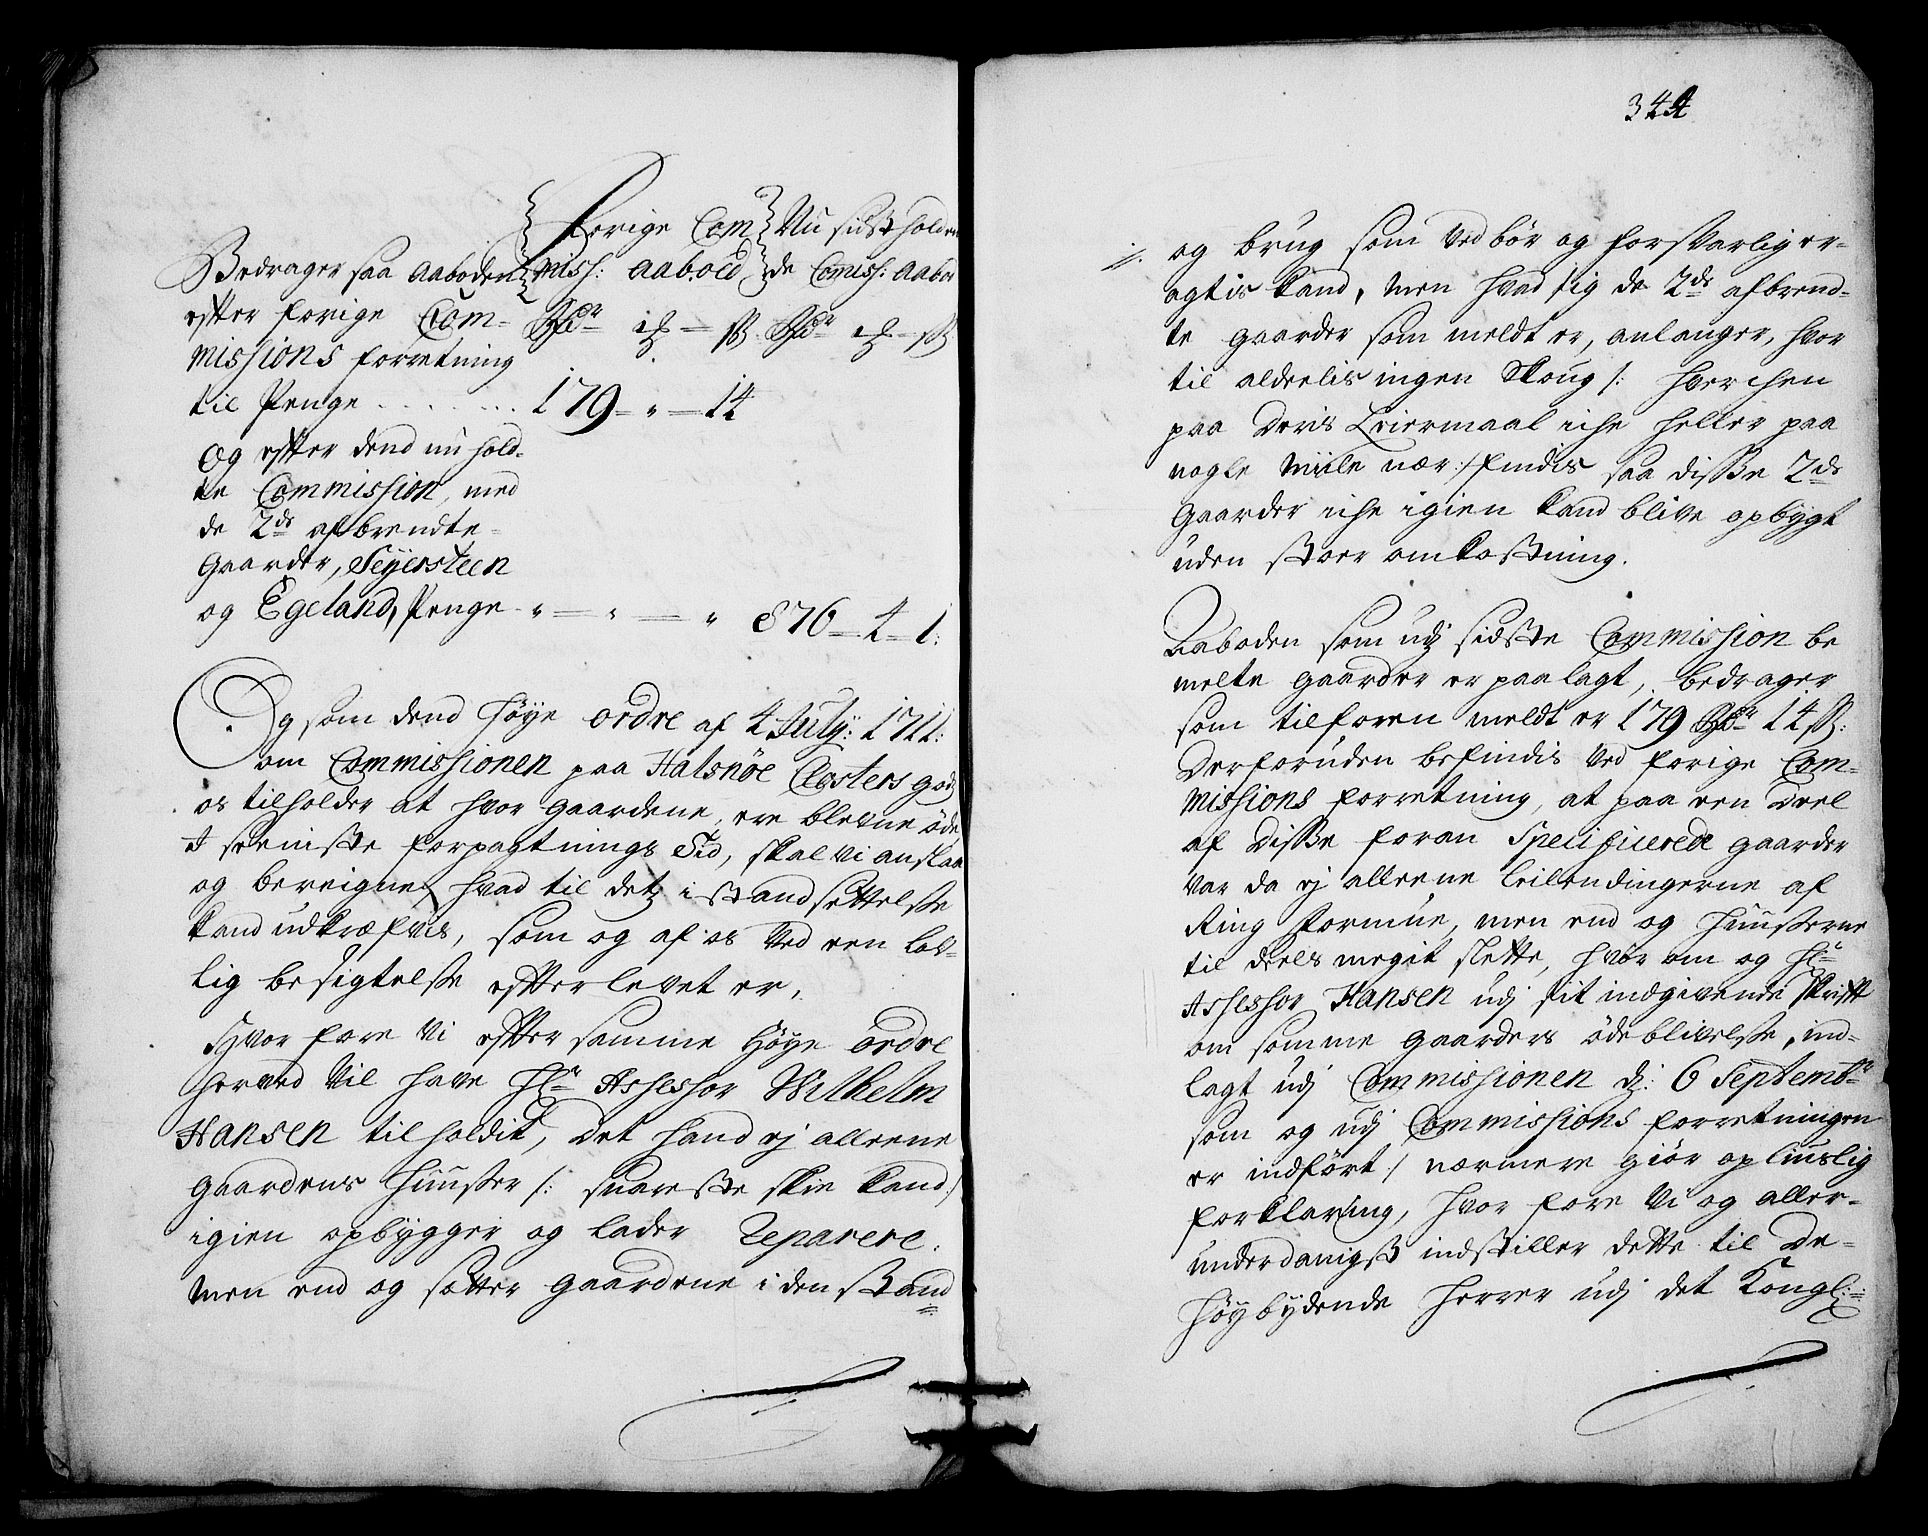 Bedrager saa aaboden
efter forige Com-
missions forretning
til Penge . . . . . . .
Og efter dend nu hold-
te Commission, med
de 2de afbrendte
Gaarder, Seyersteen
og Egeland, Penge
forige Com
miss: aaboed
Rdr – ß
179 – " – 14
" – " – "
Nu sidst holden
de Comiss: aabod
Rdr – ß
876 – 4 – 1:
Og som dend høye ordre af 4 July: 1711:
om Commissionen paa Halsnöe Closters godz
os tilholder at hvor gaardene, ere blevne öde
I seeniste forpagtnings Tid, skal vi anslaae
og bereigne, hvad til detz istandsettelsse
kand udkræfvis, som og af os ved een lov-
lig besigtelsse efterlevet er,
Hvor fore vi efter samme høye ordre
herved vil have Hr Assessor Wilhelm
Hansen tilholdit, det hand ej alleene
gaardens huusser /: snareste skee kand :/
igien opbygger og lader Reparere,
men end og setter gaardene i den stand
344
//. og brug som ved bør og forsvarlig er-
agtis kand, men hvad sig de 2de afbrend-
te gaarder som meldt er, anlanger, hvor
til aldeelis ingen Skoug /: hverchen
paa deris Leiermaal iche heller paa
nogle Miile nær :/ findis saa disse 2de
Gaarder iche igien kand blive opbygt
uden stoer omkostning.
Aaboden som udj sidste Commission be
melte gaarder er paalagt, bedrager
som tilforen meldt er 179 Rdr 14 ß:
Derforuden befindis ved forige Com-
missions forretning, at paa een deel
af disse foran Specificerede gaarder
var da ej alleene leilendingerne af
Ring formue, men end og huusserne
til deels megit slette, hvor om og Hr
Assessor Hansen udj sit indgivende skrift
om somme gaarders ödeblivelsse, ind-
lagt udj Commissionen d: 6 Septembr
som og udj Commissions forretningen
er indført :/ nærmere giör opliuslig
forklaring, hvor fore vi og aller-
underdanigst indstiller dette til De-
høybydende herrer udj det Kongl: